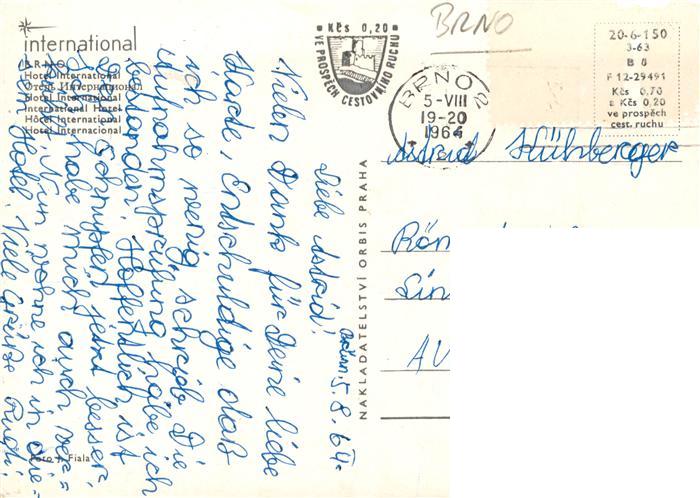 international
BRNO
Hotel International
Отель Интернационал
Hotel International
International Hotel
Hôtel International
Hotel Internacional
Foto J. Fiala
Kčs 0,20
VE PROSPĚCH CESTOVNÍHO RUCHU
BRNO
BRNO 2
5-VIII
19-20
1964
20-6-150
3-63
B 0
F 12-29491
Kčs 0,70
a Kčs 0,20
ve prospěch
cest. ruchu
NAKLADATELSTVÍ ORBIS PRAHA
Astrid Hühberger
Röm
Lin
AU
5.8.64.
Liebe Astrid!
Vielen Dank für Deine liebe
Karte, Entschuldige daß
ich so wenig schrieb. Die
Aufnahmsprüfung habe ich
bestanden. Hoffentlich ist
Schnupfen jetzt besser,
habe mich auch
Nun wohne ich in die=
Hotel. Viele Grüße Ruth.